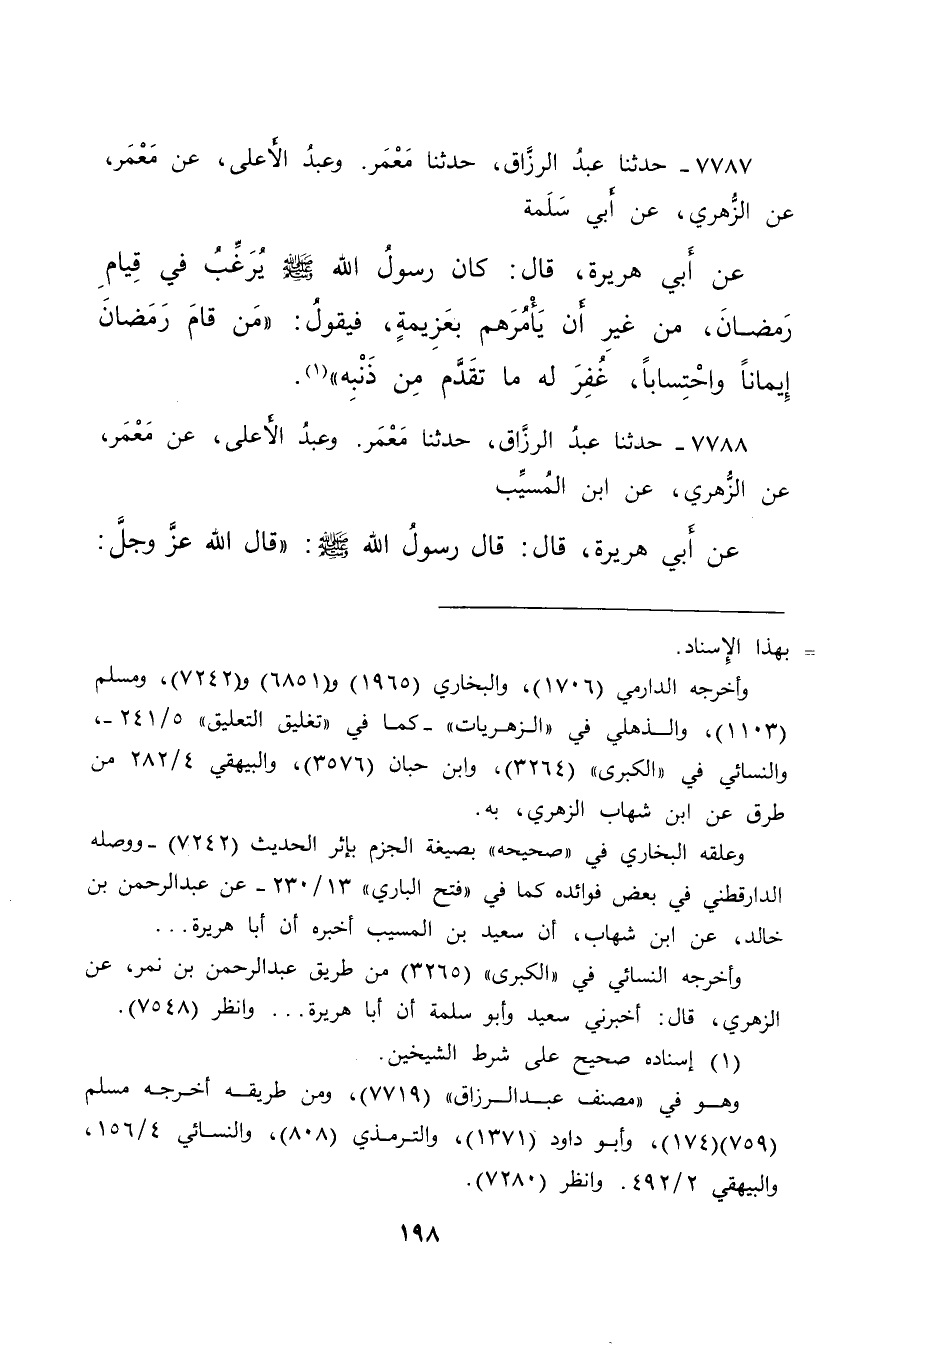 ٧٧٨٧ـ حدثنا عبدُ الرزَّاق، حدثنا مَعْمَر. وعبدُ الأَعلى، عن مَعْمَر،
عن الزُّهري، عن أَبي سَلَمة
عن أَبي هريرة، قال: كان رسولُ الله ﷺ يُرَغِّبُ في قِيامِ
رَمضـانَ، من غيرِ أَن يَأْمُرَهم بعَزِيمةٍ، فيقولُ: «مَن قامَ رَمَضانَ
إِيماناً واحْتِساباً، غُفِرَ له ما تقَدَّم مِن ذَنْبِه»(١).
٧٧٨٨ـ حدثنا عبدُ الرزَّاق، حدثنا مَعْمَر. وعبدُ الأَعلى، عن مَعْمَر،
عن الزُّهري، عن ابن المُسيِّب
عن أَبي هريرة، قال: قال رسولُ الله ﷺ: «قال الله عزَّ وجلَّ:
= بهذا الإِسناد.
وأخرجه الدارمي (١٧٠٦)، والبخاري (١٩٦٥) و(٦٨٥١) و(٧٢٤٢)، ومسلم
(١١٠٣)، والـذهلي في «الـزهـريات» ـ كمـا في «تغليق التعليق» ٢٤١/٥ ـ،
والنسائي في «الكبرى» (٣٢٦٤)، وابن حبان (٣٥٧٦)، والبيهقي ٢٨٢/٤ من
طرق عن ابن شهاب الزهري، به.
وعلقه البخاري في «صحيحه» بصيغة الجزم بإثر الحديث (٧٢٤٢) ـ ووصله
الدارقطني في بعض فوائده كما في «فتح الباري» ٢٣٠/١٣ ـ عن عبدالرحمن بن
خالد، عن ابن شهاب، أن سعيد بن المسيب أخبره أن أبا هريرة...
وأخرجه النسائي في «الكبرى» (٣٢٦٥) من طريق عبدالرحمن بن نمر، عن
الزهري، قال: أخبرني سعيد وأبو سلمة أن أبا هريرة... وانظر (٧٥٤٨).
(١) إسناده صحيح على شرط الشيخين.
وهـو في «مصنف عبـدالـرزاق» (٧٧١٩)، ومن طريقـه أخرجـه مسلم
(٧٥٩)(١٧٤)، وأبـو داود (١٣٧١)، والتـرمـذي (٨٠٨)، والنسـائي ١٥٦/٤،
والبيهقي ٤٩٢/٢. وانظر (٧٢٨٠).
١٩٨